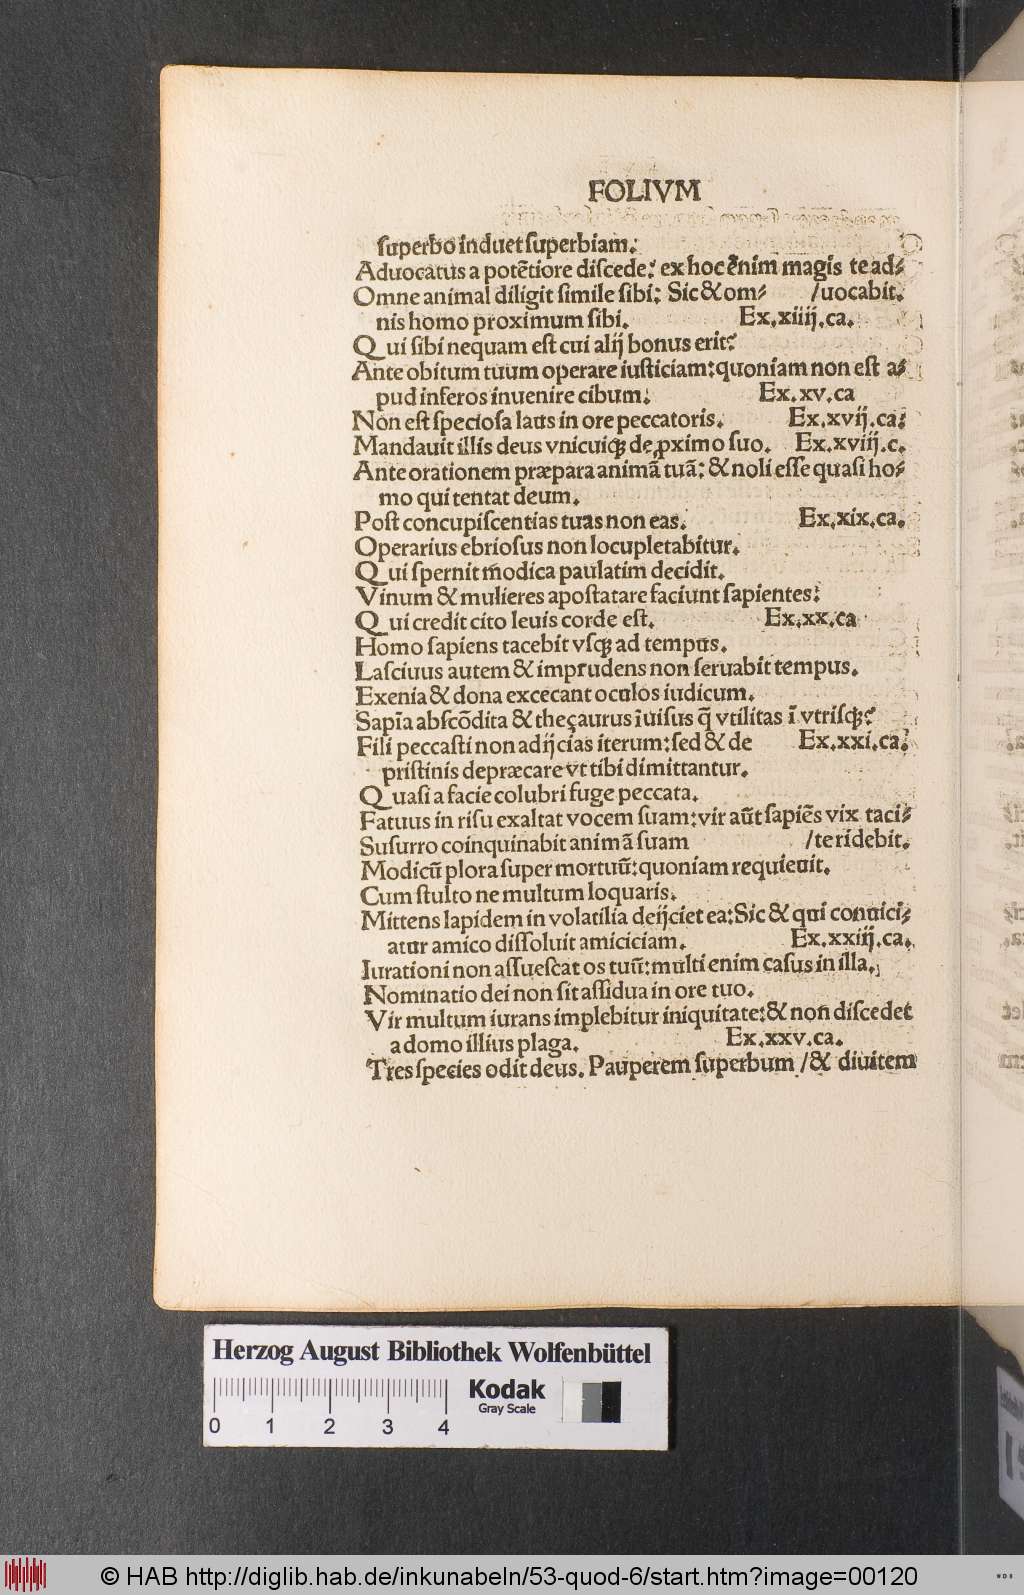 FOLIVM
ſuperbo induet ſuperbiam.
Aduocatus a potẽtiore diſcede: ex hoc ẽnim magis te ad⸗
Omne animal diligit ſimile ſibi: Sic & om⸗ /uocabit.
nis homo proximum ſibi. Ex.xiiij.ca.
Qui ſibi nequam eſt cui alij bonus erit?
Ante obitum tuum operare iuſticiam: quoniam non eſt a⸗
pud inferos inuenire cibum. Ex.xv.ca
Non eſt ſpecioſa laus in ore peccatoris. Ex.xvij.ca:
Mandauit illis deus vnicuiqꝫ de ꝓximo ſuo. Ex.xviij.c.
Ante orationem præpara animã tuã: & noli eſſe quaſi ho⸗
mo qui tentat deum.
Poſt concupiſcentias tuas non eas. Ex.xix.ca.
Operarius ebrioſus non locupletabitur.
Qui ſpernit m̃odica paulatim decidit.
Vinum & mulieres apoſtatare faciunt ſapientes:
Qui credit cito leuis corde eſt. Ex.xx.ca
Homo ſapiens tacebit vſqꝫ ad tempus.
Laſciuus autem & imprudens non ſeruabit tempus.
Exenia & dona excecant oculos iudicum.
Sapĩa abſcõdita & theçaurus ĩuiſus q̃ vtilitas ĩ vtriſqꝫ?
Fili peccaſti non adijcias iterum: ſed & de Ex.xxi.ca.
priſtinis depræcare vt tibi dimittantur.
Quaſi a facie colubri fuge peccata.
Fatuus in riſu exaltat vocem ſuam: vir aũt ſapiẽs vix taci⸗
Suſurro coinquinabit animã ſuam /te ridebit.
Modicũ plora ſuper mortuũ: quoniam requieuit.
Cum ſtulto ne multum loquaris.
Mittens lapidem in volatilia deijciet ea: Sic & qui conuici⸗
atur amico diſſoluit amiciciam. Ex.xxiij.ca.
Iurationi non aſſueſcat os tuũ: multi enim caſus in illa.
Nominatio dei non ſit aſſidua in ore tuo.
Vir multum iurans implebitur iniquitate: & non diſcedet
a domo illius plaga. Ex.xxv.ca.
Tres ſpecies odit deus. Pauperem ſuperbum /& diuitem
Herzog August Bibliothek Wolfenbüttel
Kodak
Gray Scale
0 1 2 3 4
© HAB http://diglib.hab.de/inkunabeln/53-quod-6/start.htm?image=00120